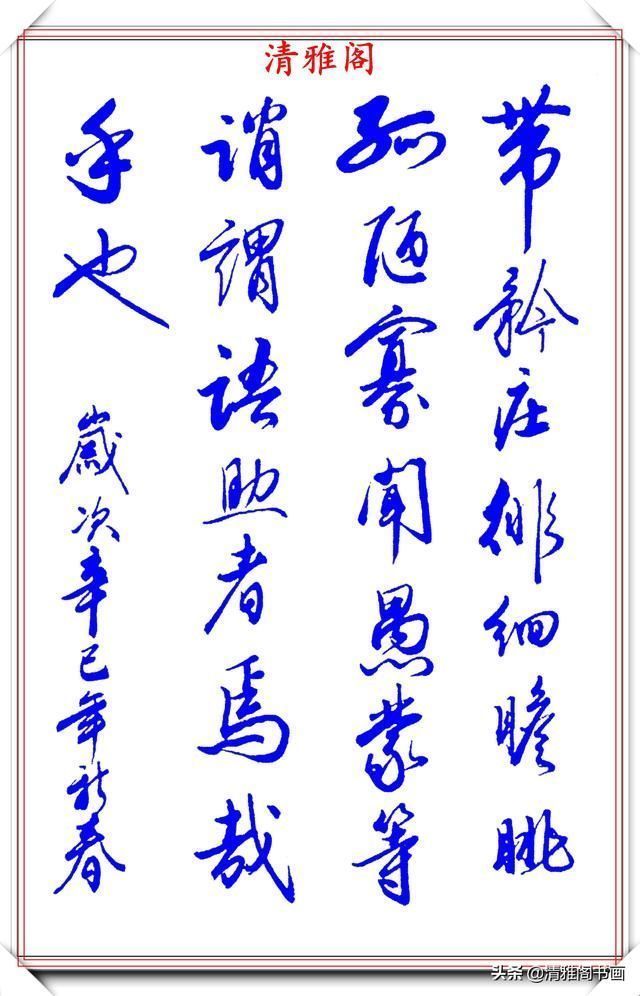 清雅阁
带矜庄徘徊瞻眺
孤陋寡闻愚蒙等
誚謂語助者焉哉
乎也
歲次辛巳年新春
头条@清雅阁书画